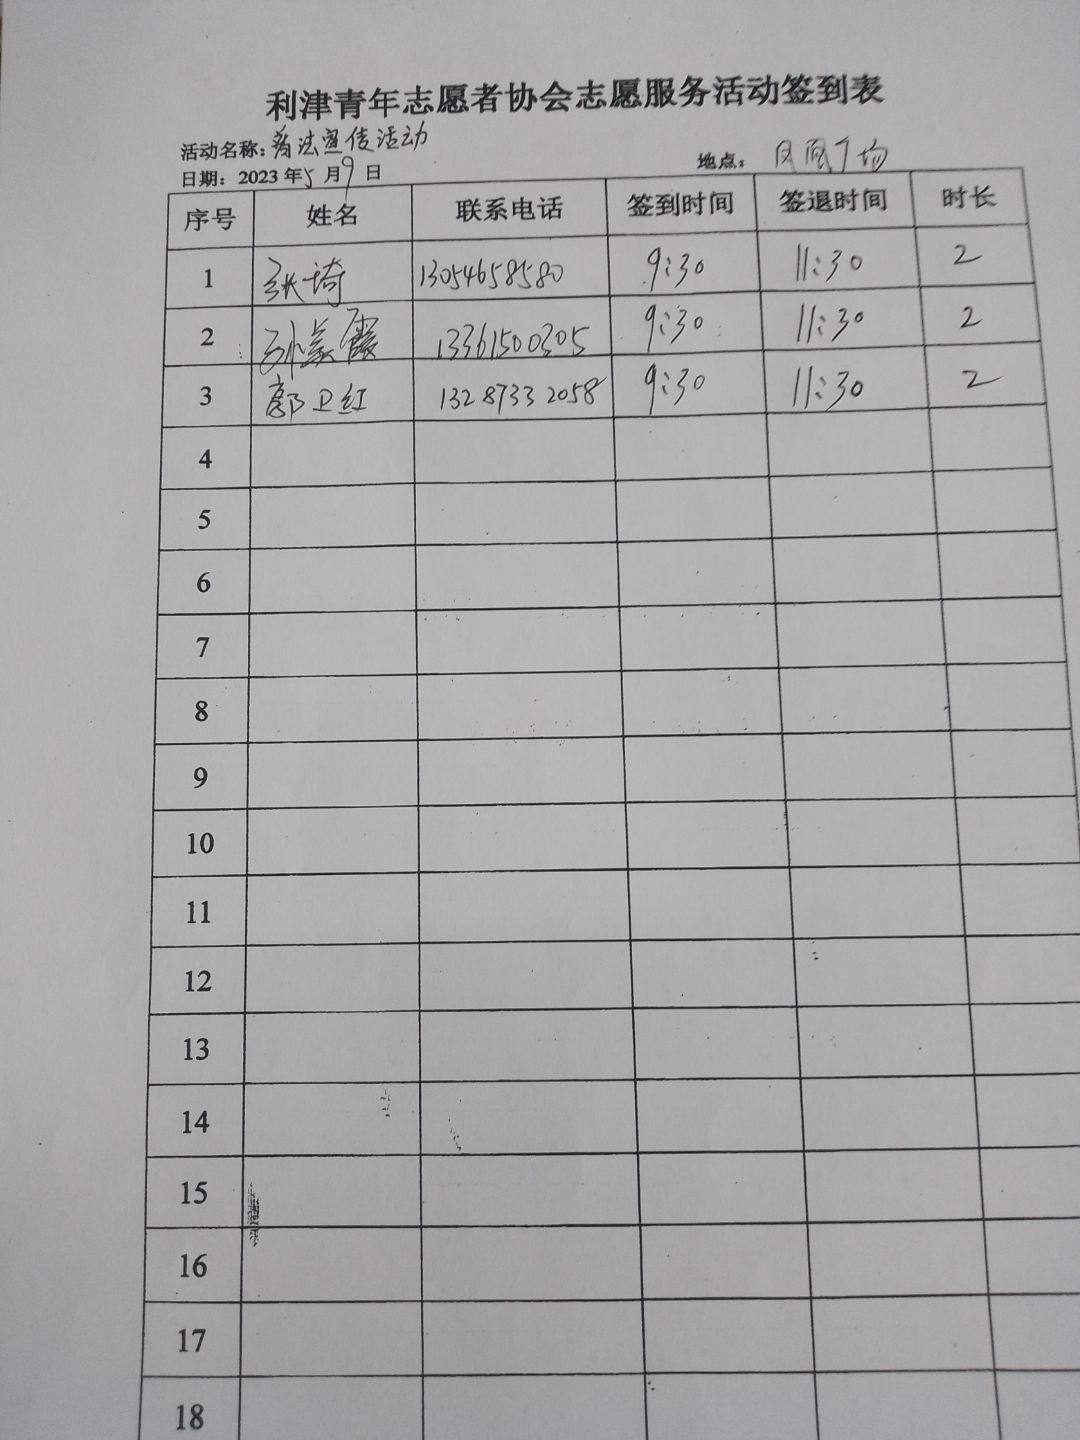 利津青年志愿者协会志愿服务活动签到表
活动名称：普法宣传活动
日期：2023年5月9日 地点：凤凰广场
序号 姓名 联系电话 签到时间 签退时间 时长
1 张琦 13054658580 9:30 11:30 2
2 孙美霞 13361500305 9:30 11:30 2
3 郭卫红 13287332058 9:30 11:30 2
4
5
6
7
8
9
10
11
12
13
14
15
16
17
18